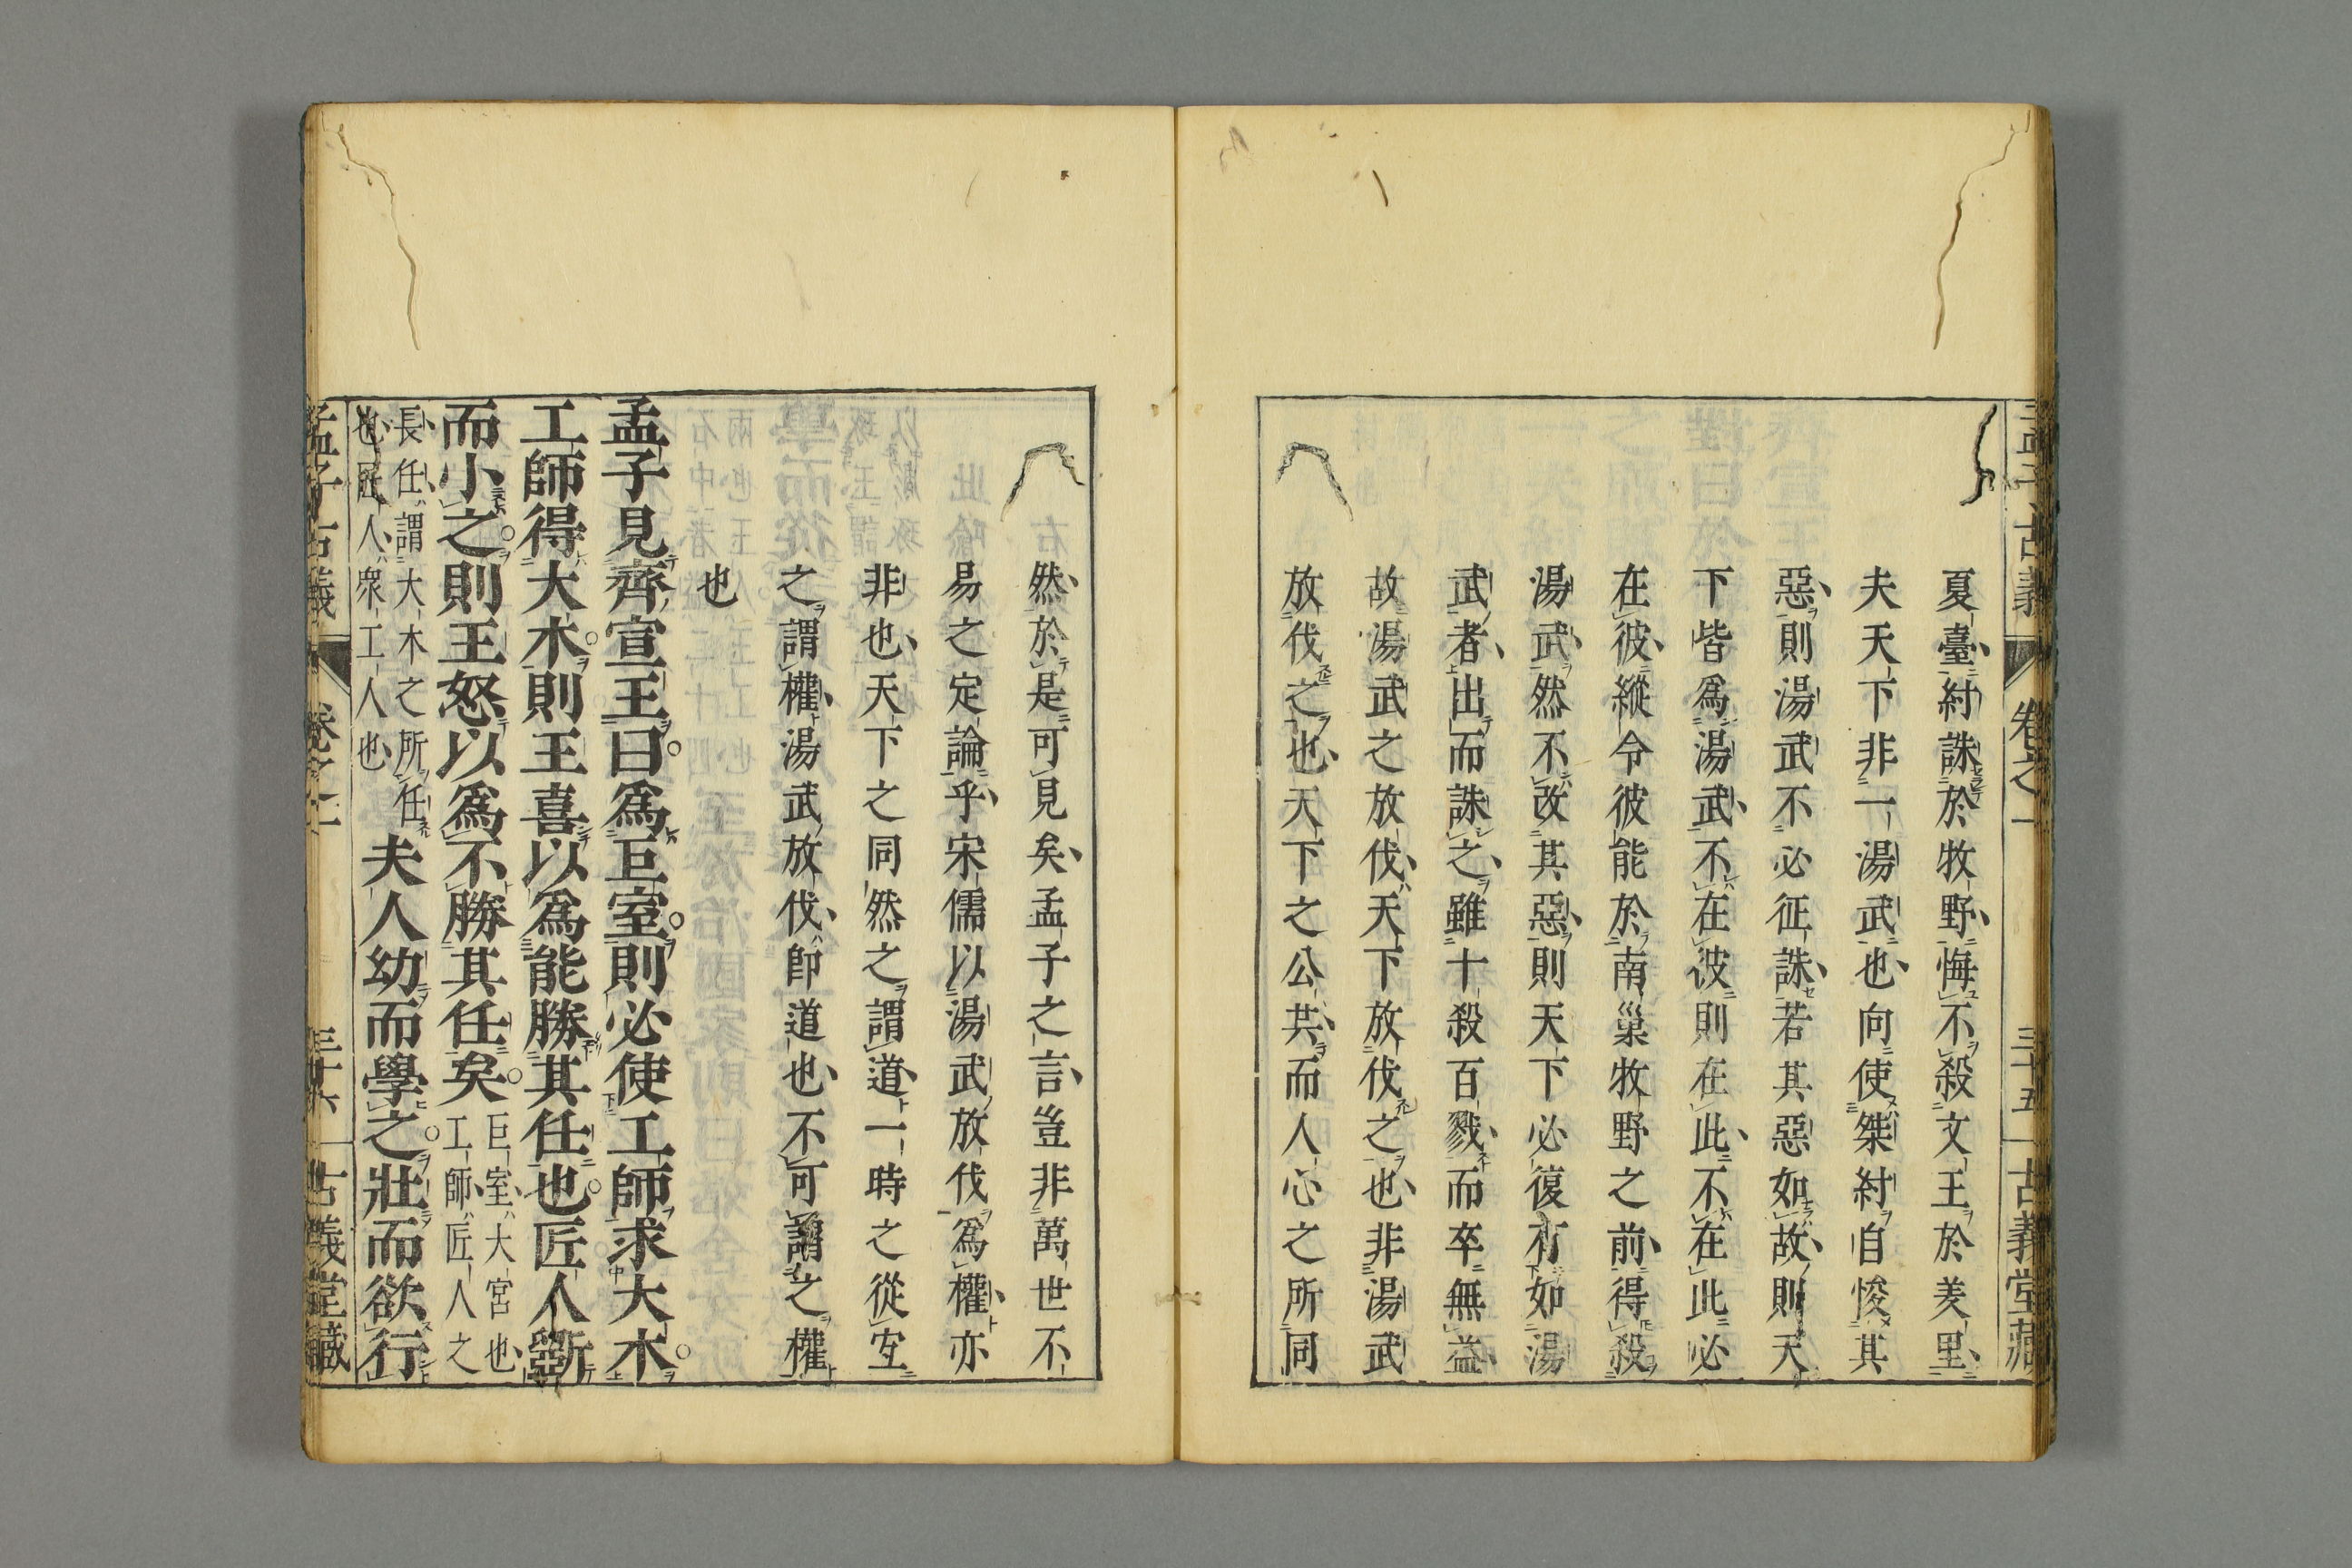 孟子古義 卷之一 三十五 古義堂藏
夏臺紂誅於牧野悔不殺文王於羑里
夫天下非一湯武也向使桀紂自悛其
惡則湯武不必征誅若其惡如故則天
下皆爲湯武不在彼則在此不在此必
在彼縱令彼能於南巢牧野之前得殺
湯武然不改其惡則天下必復有如湯
武者出而誅之雖十殺百戮而卒無益
故湯武之放伐天下放伐之也非湯武
放伐之也天下之公共而人心之所同
然於是可見矣孟子之言豈非萬世不
易之定論乎宋儒以湯武放伐爲權亦
非也天下之同然之謂道一時之從宐
之謂權湯武放伐卽道也不可謂之權
也
孟子見齊宣王曰爲巨室則必使工師求大木
工師得大木則王喜以爲能勝其任也匠人斲
而小之則王怒以爲不勝其任矣
巨室大宮也
工師匠人之
長任謂大木之所任
也匠人衆工人也
夫人幼而學之壯而欲行
孟子古義 卷之一 三十六 古義堂藏